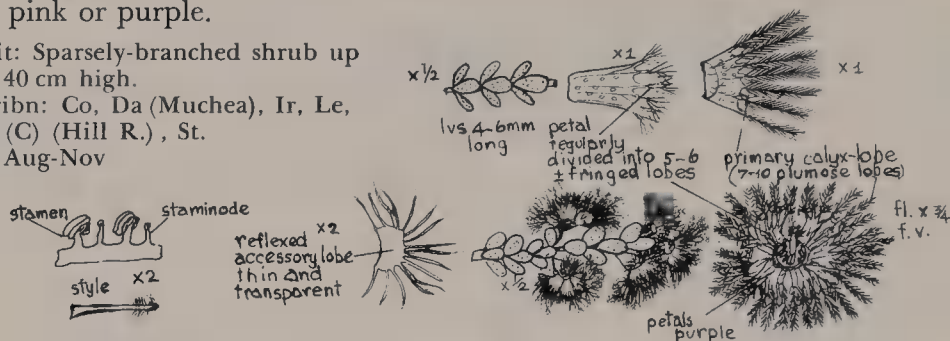 pink or purple.
it: Sparsely-branched shrub up
40 cm high.
ribn: Co, Da (Muchea), Ir, Le,
(C) (Hill R.), St.
Aug-Nov
x ½
lvs 4-6mm
long
x1
petal
regularly
divided into 5-6
± fringed lobes
x 1
primary calyx-lobe
(7-10 plumose lobes)
stamen
staminode
style
x2
reflexed
accessory lobe
thin and
transparent
x2
x ½
fl. x ¾
f. v.
petals
purple